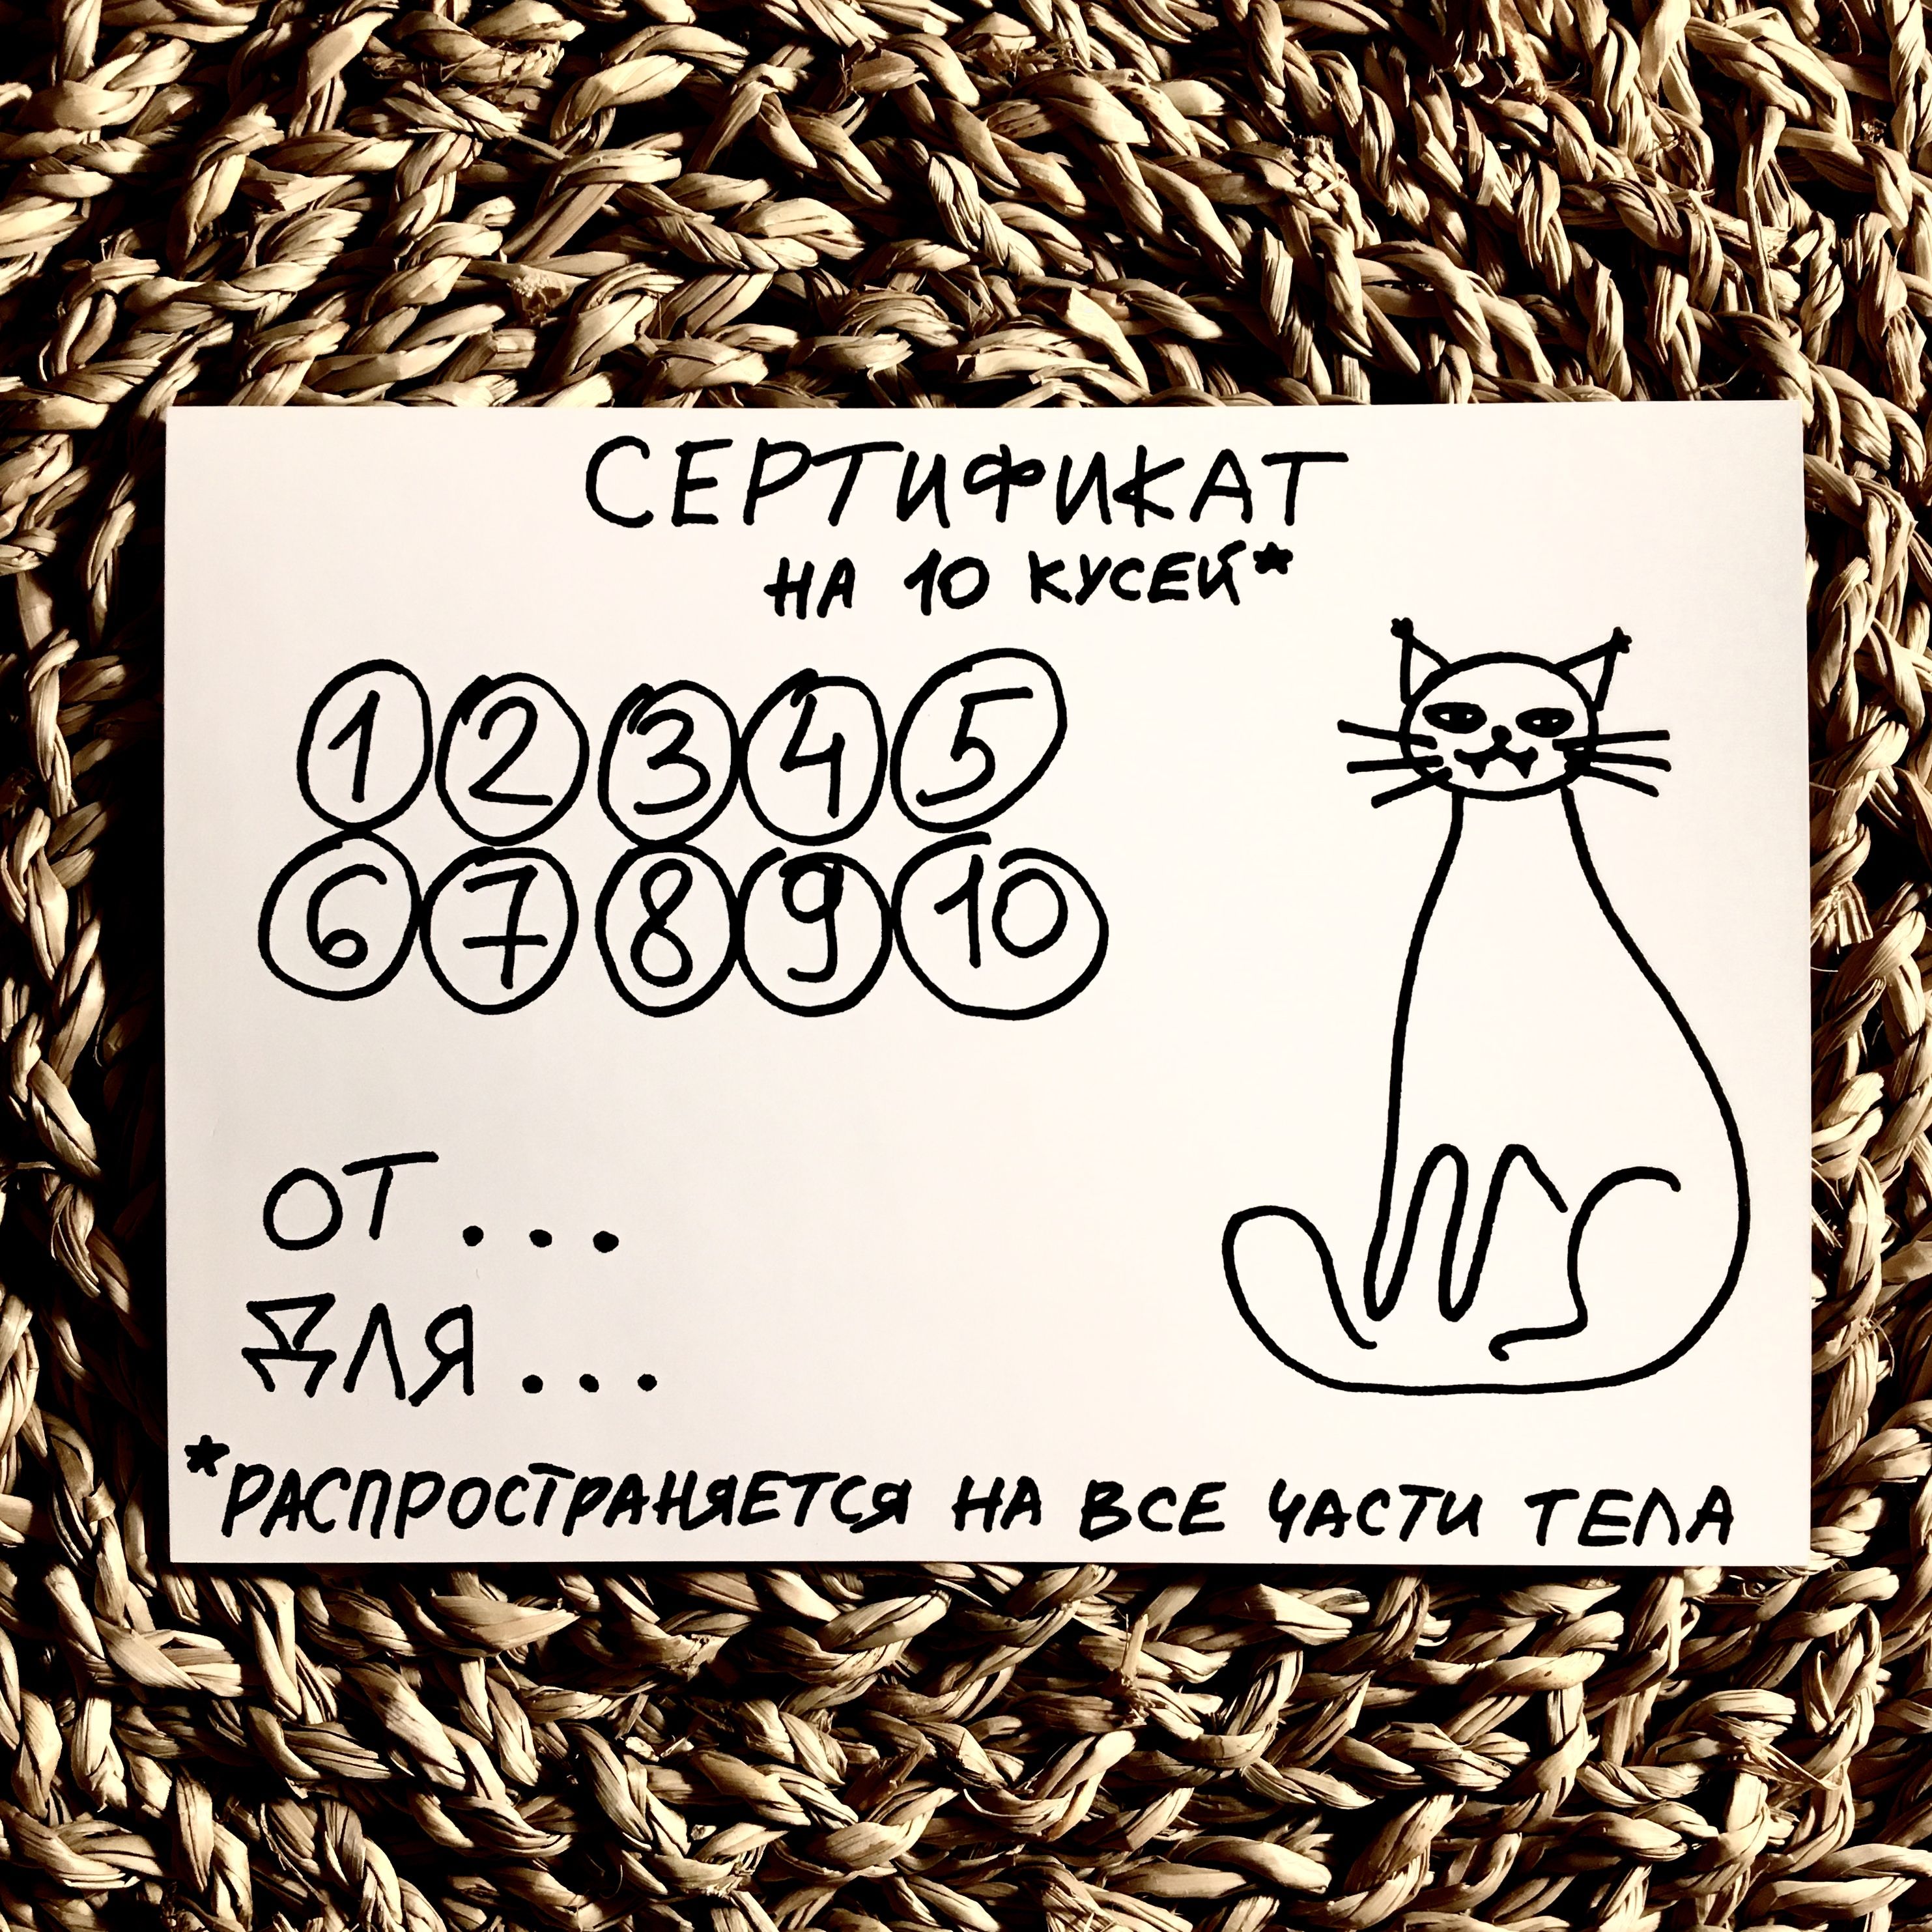 СЕРТИФИКАТ
НА 10 КУСЕЙ*
1 2 3 4 5
6 7 8 9 10
ОТ...
ДЛЯ...
*РАСПРОСТРАНЯЕТСЯ НА ВСЕ ЧАСТИ ТЕЛА